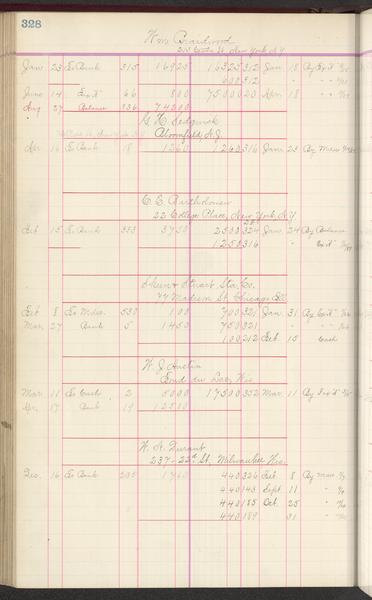 328
Wm Beardwood
New York N.Y.
Jan 23 To Bank 315 169 25 163 25 312 Jan 18 By Exp't
6 00 312
June 14 Exp't 66 8 00 750 00 20 Apr 18
Aug 27 Balance 336 742 00
G. H. Sedgwick
Bloomfield, N.J.
Apr 16 To Bank 18 12 60 12 60 316 Jan 23 By Mdse
C. E. Bartholomew
22 College Place, New York, N.Y.
Feb 15 To Bank 37 50 25 00 324 Jan 24 By Balance
12 50 316 Exp't
Skeen & Stuart Sta. Co.
77 Madison St. Chicago Ill
Feb 8 To Mdse. 530 1 00 7 00 321 Jan 31 By Exp't
Mar 27 Bank 5 14 50 7 50 321
1 00 212 Feb 15 Cash
W. J. Austin
Fond du Lac, Wis
Mar 11 To Cash 2 50 00 175 00 352 Mar 11 By Exp't
Apr 17 Bank 19 125 00
W. H. Durant
237-22d St, Milwaukee Wis.
Dec 16 To Bank 295 17 60 4 40 326 Feb 8 By Mdse
4 40 143 Sept 11
4 40 185 Oct 25
4 40 189 31